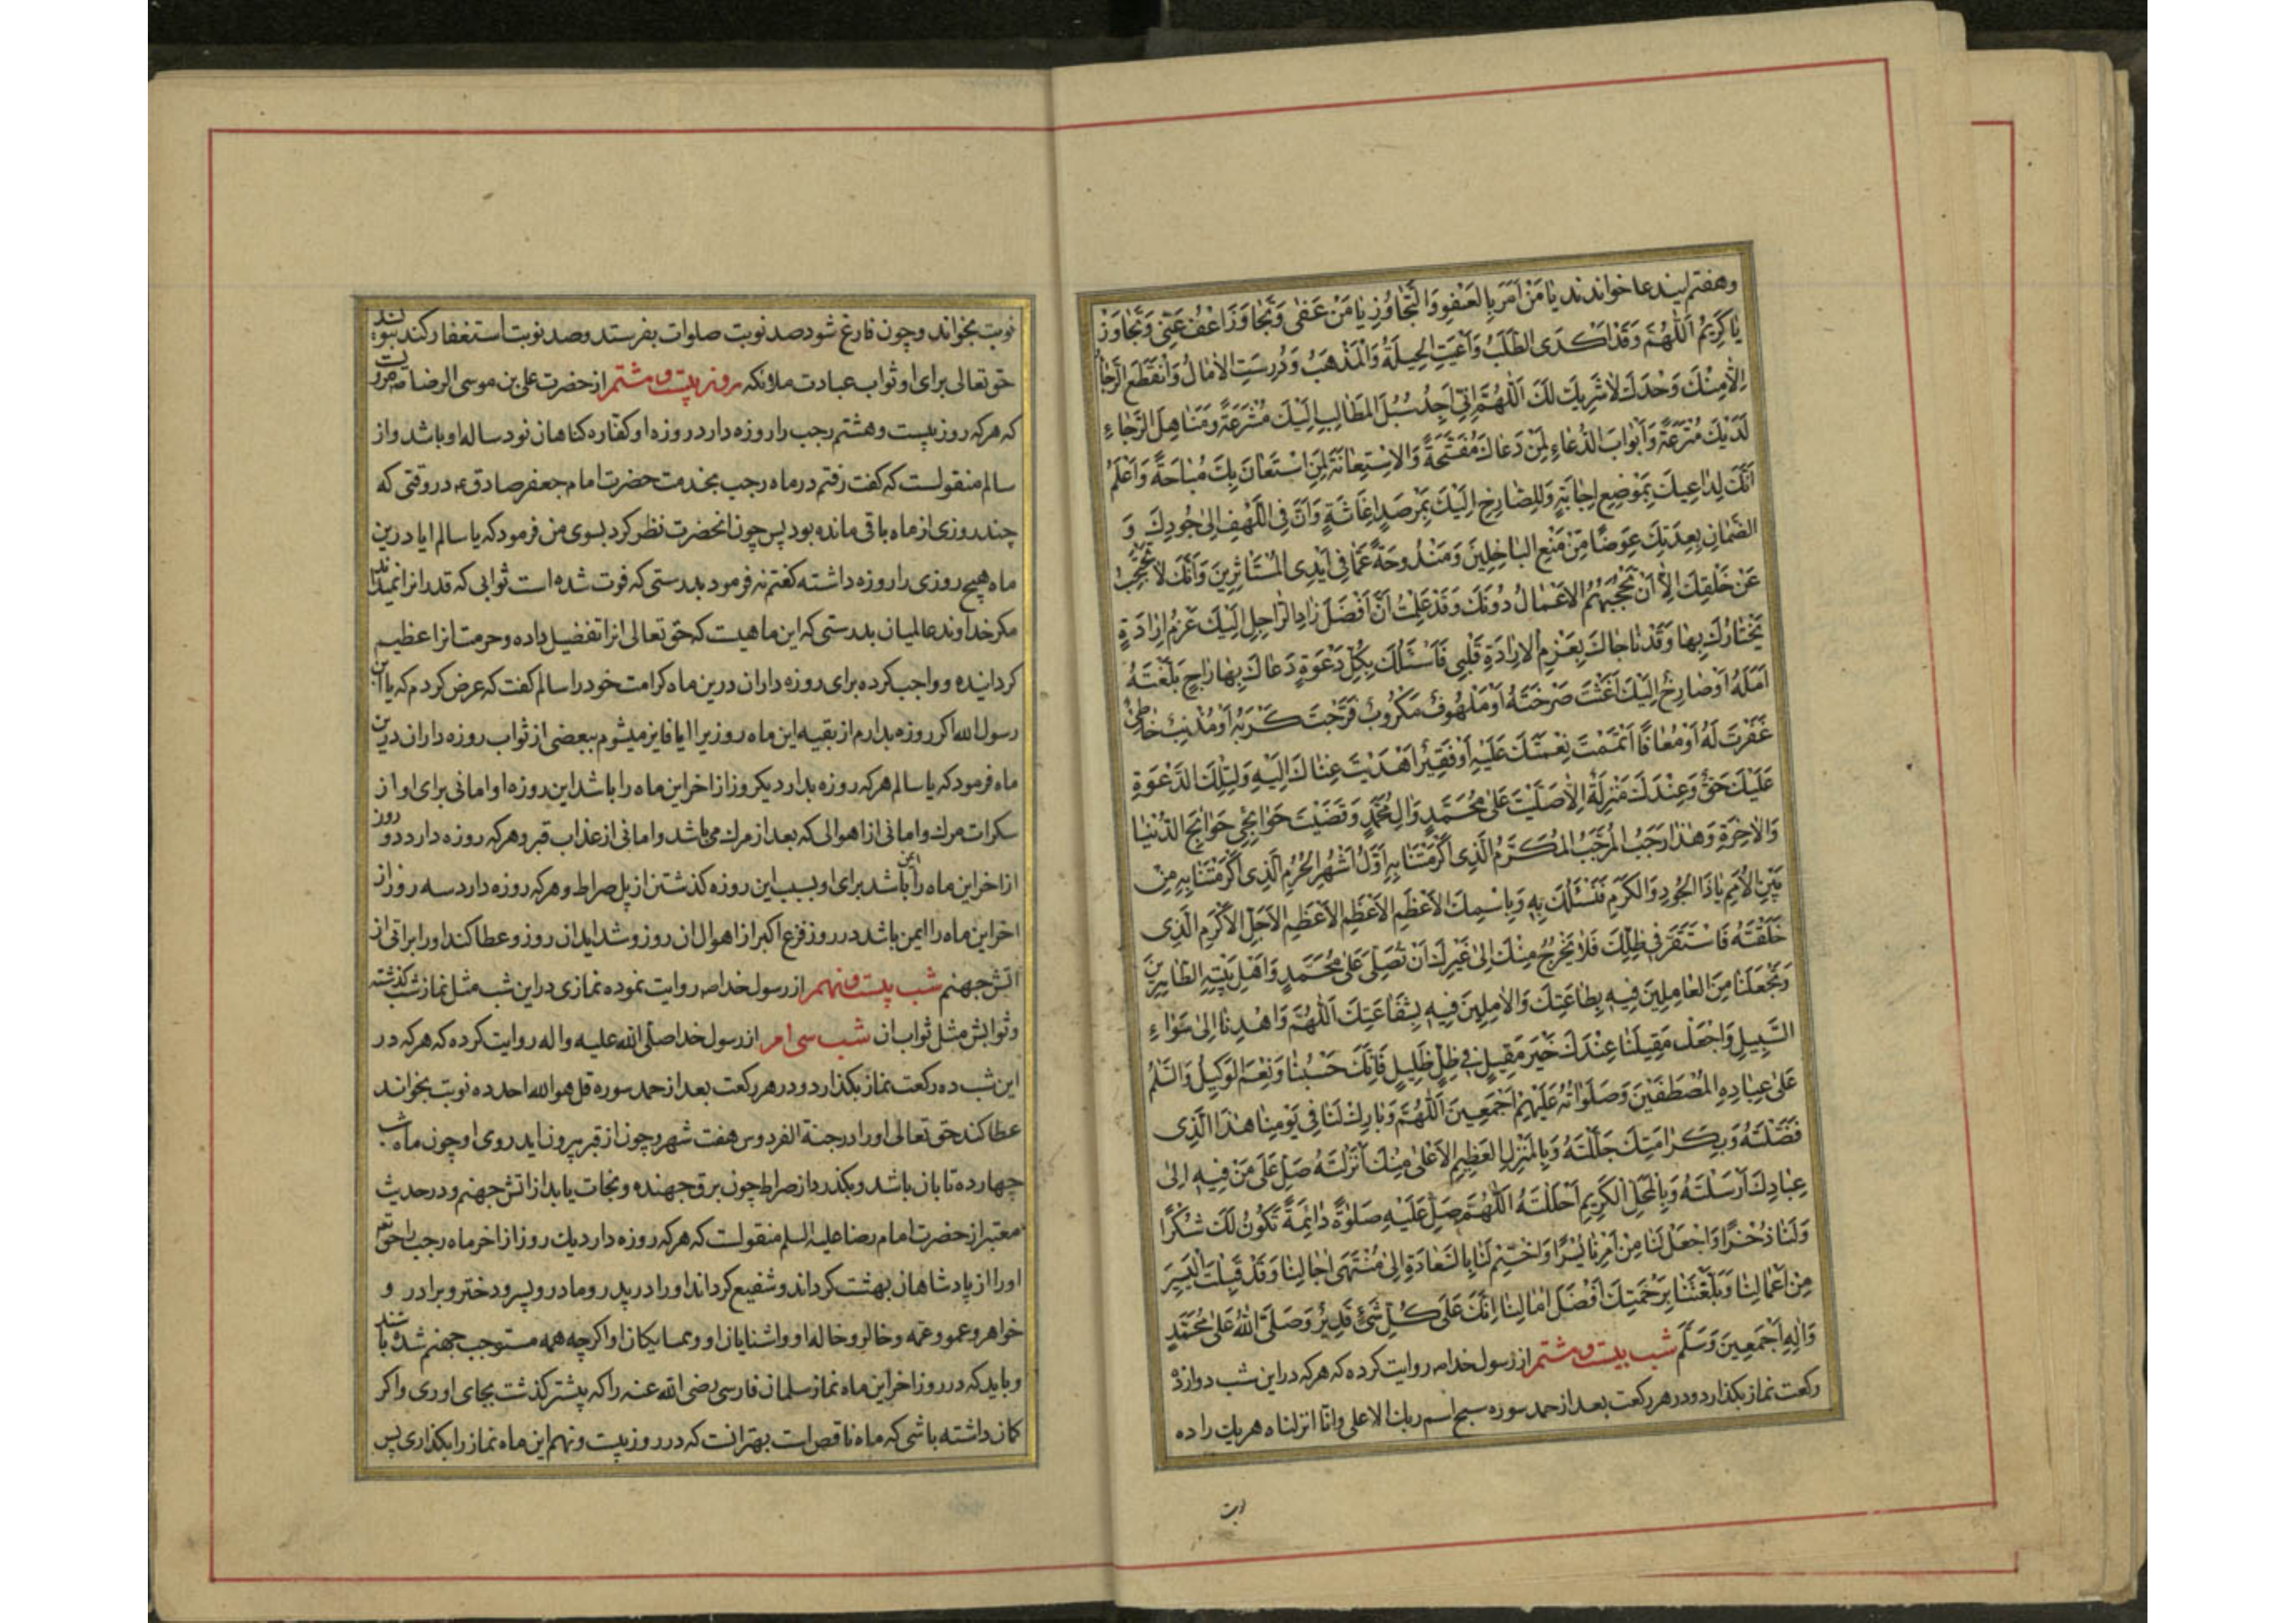 وهفتم ایندعا خواندند یا مَنْ اَمَرَ بِالعَفْوِ وَالتَّجاوُزِ یا مَنْ عَفی وَتَجاوَزَ اُعْفُ عَنّی وَتَجاوَزْ
یا کَریمُ اَللّهُمَّ وَقَدْ اَکْدَی الطَّلَبُ وَاَعْیَتِ الحیلَةُ وَالمَذْهَبُ وَدُرِسَتِ الامالُ وَانْقَطَعَ الرَّجاءُ
اِلّا مِنْکَ وَحْدَکَ لا شَریکَ لَکَ اَللّهُمَّ اِنّی اَجِدُ سُبُلَ المَطالِبِ اِلَیْکَ مُشْرَعَةً وَمَناهِلَ الرَّجاءِ
لَدَیْکَ مُتْرَعَةً وَاَبْوابَ الدُّعاءِ لِمَنْ دَعاکَ مُفَتَّحَةً وَالاِسْتِعانَةَ لِمَنِ اسْتَعانَ بِکَ مُباحَةً وَاَعْلَمُ
اَنَّکَ لِداعیکَ بِمَوْضِعِ اِجابَةٍ وَلِلصّارِخِ اِلَیْکَ بِمَرْصَدِ اِغاثَةٍ وَاَنَّ فِی اللَّهْفِ اِلی جُودِکَ وَ
الضَّمانِ بِعِدَتِکَ عِوَضًا مِنْ مَنْعِ الباخِلینَ وَمَنْدُوحَةً عَمّا فی اَیْدِی المُسْتَاثِرینَ وَاَنَّکَ لا تَحْتَجِبُ
عَنْ خَلْقِکَ اِلّا اَنْ تَحْجُبَهُمُ الاَعْمالُ دُونَکَ وَقَدْ عَلِمْتُ اَنَّ اَفْضَلَ زادِ الرّاحِلِ اِلَیْکَ عَزْمُ اِرادَةٍ
یَخْتارُکَ بِها وَقَدْ ناجاکَ بِعَزْمِ الاِرادَةِ قَلْبی فَاَسْئَلُکَ بِکُلِّ دَعْوَةٍ دَعاکَ بِها راجٍ بَلَّغْتَهُ
اَمَلَهُ اَوْ صارِخٌ اِلَیْکَ اَغَثْتَ صَرْخَتَهُ اَوْ مَلْهُوفٌ مَکْرُوبٌ فَرَّجْتَ کَرْبَهُ اَوْ مُذْنِبٌ خاطِئٌ
غَفَرْتَ لَهُ اَوْ مُعافًا اَتْمَمْتَ نِعْمَتَکَ عَلَیْهِ اَوْ فَقیرٌ اَهْدَیْتَ غِناکَ اِلَیْهِ وَلِتِلْکَ الدَّعْوَةِ
عَلَیْکَ حَقٌّ وَعِنْدَکَ مَنْزِلَةٌ اِلّا صَلَّیْتَ عَلی مُحَمَّدٍ وَالِ مُحَمَّدٍ وَقَضَیْتَ حَوائِجی حَوائِجَ الدُّنْیا
وَالاخِرَةِ وَهذا رَجَبُ المُرَجَّبُ المُکَرَّمُ الَّذی اَکْرَمْتَنا بِهِ اَوَّلُ اَشْهُرِ الحُرُمِ الَّذی اَکْرَمْتَنا بِهِ مِنْ
بَیْنِ الاُمَمِ یا ذَا الجُودِ وَالکَرَمِ فَنَسْئَلُکَ بِهِ وَبِاسْمِکَ الاَعْظَمِ الاَعْظَمِ الاَعْظَمِ الاَجَلِّ الاَکْرَمِ الَّذی
خَلَقْتَهُ فَاسْتَقَرَّ فی ظِلِّکَ فَلا یَخْرُجُ مِنْکَ اِلی غَیْرِکَ اَنْ تُصَلِّیَ عَلی مُحَمَّدٍ وَاَهْلِ بَیْتِهِ الطّاهِرینَ
وَتَجْعَلَنا مِنَ العامِلینَ فیهِ بِطاعَتِکَ وَالامِلینَ فیهِ بِشَفاعَتِکَ اَللّهُمَّ وَاهْدِنا اِلی سَواءِ
السَّبیلِ وَاجْعَلْ مَقیلَنا عِنْدَکَ خَیْرَ مَقیلٍ فی ظِلٍّ ظَلیلٍ فَاِنَّکَ حَسْبُنا وَنِعْمَ الوَکیلُ وَالسَّلمُ
عَلی عِبادِهِ المُصْطَفَیْنَ وَصَلَواتُهُ عَلَیْهِمْ اَجْمَعینَ اَللّهُمَّ وَبارِکْ لَنا فی یَوْمِنا هذَا الَّذی
فَضَّلْتَهُ وَبِکَرامَتِکَ جَلَّلْتَهُ وَبِالمَنْزِلِ العَظیمِ الاَعْلی مِنْکَ اَنْزَلْتَهُ صَلِّ عَلی مَنْ فیهِ اِلی
عِبادِکَ اَرْسَلْتَهُ وَبِالمَحَلِّ الکَریمِ اَحْلَلْتَهُ اَللّهُمَّ صَلِّ عَلَیْهِ صَلوةً دائِمَةً تَکُونُ لَکَ شُکْرًا
وَلَنا ذُخْرًا وَاجْعَلْ لَنا مِنْ اَمْرِنا یُسْرًا وَاخْتِمْ لَنا بِالسَّعادَةِ اِلی مُنْتَهی اجالِنا وَقَدْ قَبِلْتَ الیَسیرَ
مِنْ اَعْمالِنا وَبَلَّغْتَنا بِرَحْمَتِکَ اَفْضَلَ امالِنا اِنَّکَ عَلی کُلِّ شَیْءٍ قَدیرٌ وَصَلَّی اللهُ عَلی مُحَمَّدٍ
وَالِهِ اَجْمَعینَ وَسَلَّمَ شب بیست و هشتم از رسول خدا ص روایت کرده که هر که در این شب دوازده
رکعت نماز بکذارد ودر هر رکعت بعد از حمد سوره سبح اسم ربك الاعلی وانا انزلناه هریك را ده
نوبت بخواند وچون فارغ شود صد نوبت صلوات بفرستد وصد نوبت استغفار کند بنویسند
حق تعالی برای او ثواب عبادت ملائکه روز بیست و هشتم از حضرت علی بن موسی الرضا ص مرویست
که هرکه روز بیست وهشتم رجب را روزه دارد روزه او کفاره کناهان نود ساله او باشد واز
سالم منقولست که کفت رفتم در ماه رجب بخدمت حضرت امام جعفر صادق ع در وقتی که
چند روزی از ماه باقی مانده بود پس چون انحضرت نظر کرد بسوی من فرمود که یا سالم ایا درین
ماه هیچ روزی را روزه داشته کفتم نه فرمود بدرستی که فوت شده است ثوابی که قدر انرا نمیداند
مکر خداوند عالمیان بدرستی که این ماهیست که حق تعالی انرا تفضیل داده وحرمت انرا عظیم
کردانیده وواجب کرده برای روزه داران درین ماه کرامت خود را سالم کفت که عرض کردم که یا ابن
رسول الله اکر روزه بدارم از بقیه این ماه روزیرا ایا فایز میشوم ببعضی از ثواب روزه داران درین
ماه فرمود که یا سالم هرکه روزه بدارد یکروز از اخر این ماه را باشد این روزه او امانی برای او از
سکرات مرك وامانی از اهوالی که بعد از مرك میباشد وامانی از عذاب قبر وهرکه روزه دارد دو روز
از اخر این ماه را باشد برای او بسبب این روزه کذشتن از پل صراط وهرکه روزه دارد سه روز از
اخر این ماه را ایمن باشد در روز فزع اکبر از اهوال ان روز وشداید ان روز وعطا کند او را براتی از
اتش جهنم شب بیست و نهم از رسول خدا ص روایت نموده نمازی در این شب مثل نماز شب کذشته
وثوابش مثل ثواب ان شب سی ام از رسول خدا صلّی الله علیه واله روایت کرده که هرکه در
این شب ده رکعت نماز بکذارد ودر هر رکعت بعد از حمد سوره قل هو الله احد ده نوبت بخواند
عطا کند حق تعالی او را در جنة الفردوس هفت شهر وچون از قبر بیرون اید روی او چون ماه شب
چهارده تابان باشد وبکذرد از صراط چون برق جهنده ونجات یابد از اتش جهنم ودر حدیث
معتبر از حضرت امام رضا علیه السلم منقولست که هرکه روزه دارد یك روز از اخر ماه رجب را حق تعالی
او را از پادشاهان بهشت کرداند وشفیع کرداند او را در پدر ومادر وپسر ودختر وبرادر و
خواهر وعمو وعمه وخالو وخاله او واشنایان او وهمسایکان او اکرچه همه مستوجب جهنم شده باشند
وباید که در روز اخر این ماه نماز سلمان فارسی رضی الله عنه را که پیشتر کذشت بجای اوری واکر
کمان داشته باشی که ماه ناقص است بهتر انست که در روز بیست ونهم این ماه نماز را بکذاری پس